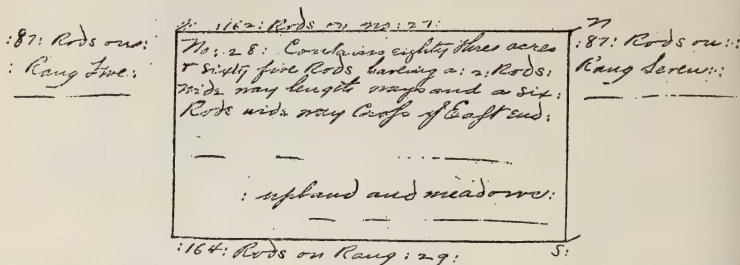 :162: Rods on no: 27:
N
:87: Rods on:
: Rang Five:
No: 28: Containing eighty three acres
& sixty five Rods haveing a: 2: Rods:
wide way length ways and a six:
Rods wide way Cross ye East end:
: upland and meadowe:
:87: Rods on::
Rang Seven::
:164: Rods on Rang: 29:
S: